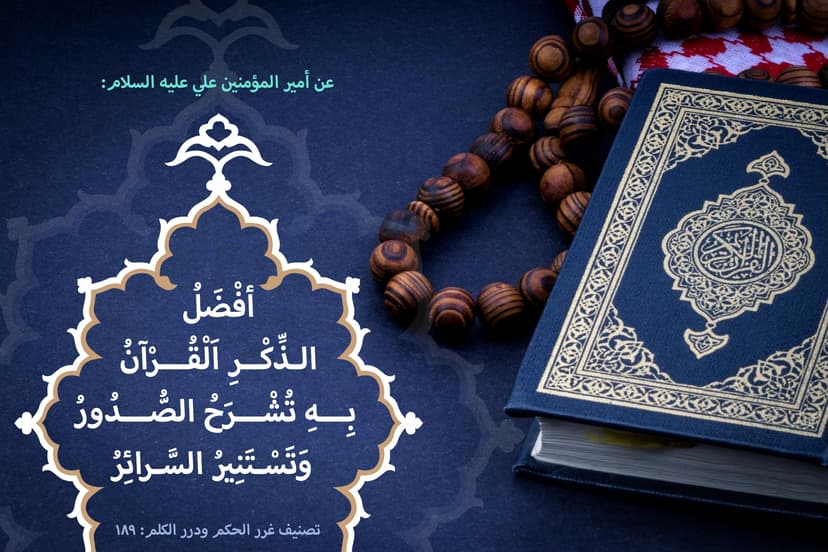 عن أمير المؤمنين علي عليه السلام:
أفْضَلُ
الذِّكْـرِ اَلْقُـرْآنُ
بِـهِ تُشْـرَحُ الصُّـدُورُ
وَتَسْـتَنِيرُ السَّـرائِرُ
تصنيف غرر الحكم ودرر الكلم: ١٨٩
القرآن الكريم